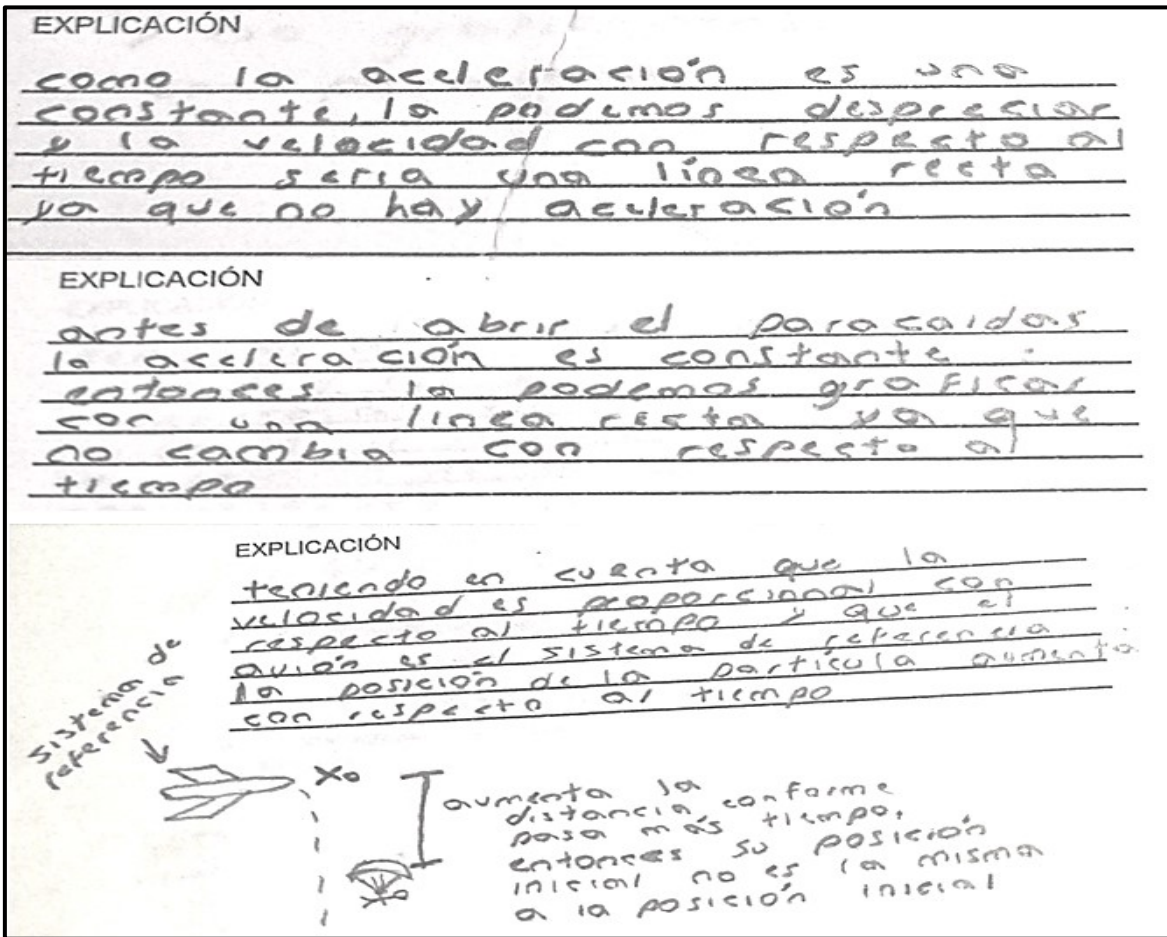 EXPLICACIÓN
como la aceleración es una
constante, la podemos despreciar
y la velocidad con respecto al
tiempo seria una línea recta
ya que no hay aceleración
EXPLICACIÓN
antes de abrir el paracaidas
la aceleración es constante
entonces la podemos graficar
con una linea recta ya que
no cambia con respecto al
tiempo
EXPLICACIÓN
teniendo en cuenta que la
velocidad es proporcional con
respecto al tiempo y que el
avión es el sistema de referencia
la posición de la partícula aumenta
con respecto al tiempo
sistema de
referencia
Xo
aumenta la
distancia conforme
pasa más tiempo,
entonces su posición
inicial no es la misma
a la posición inicial